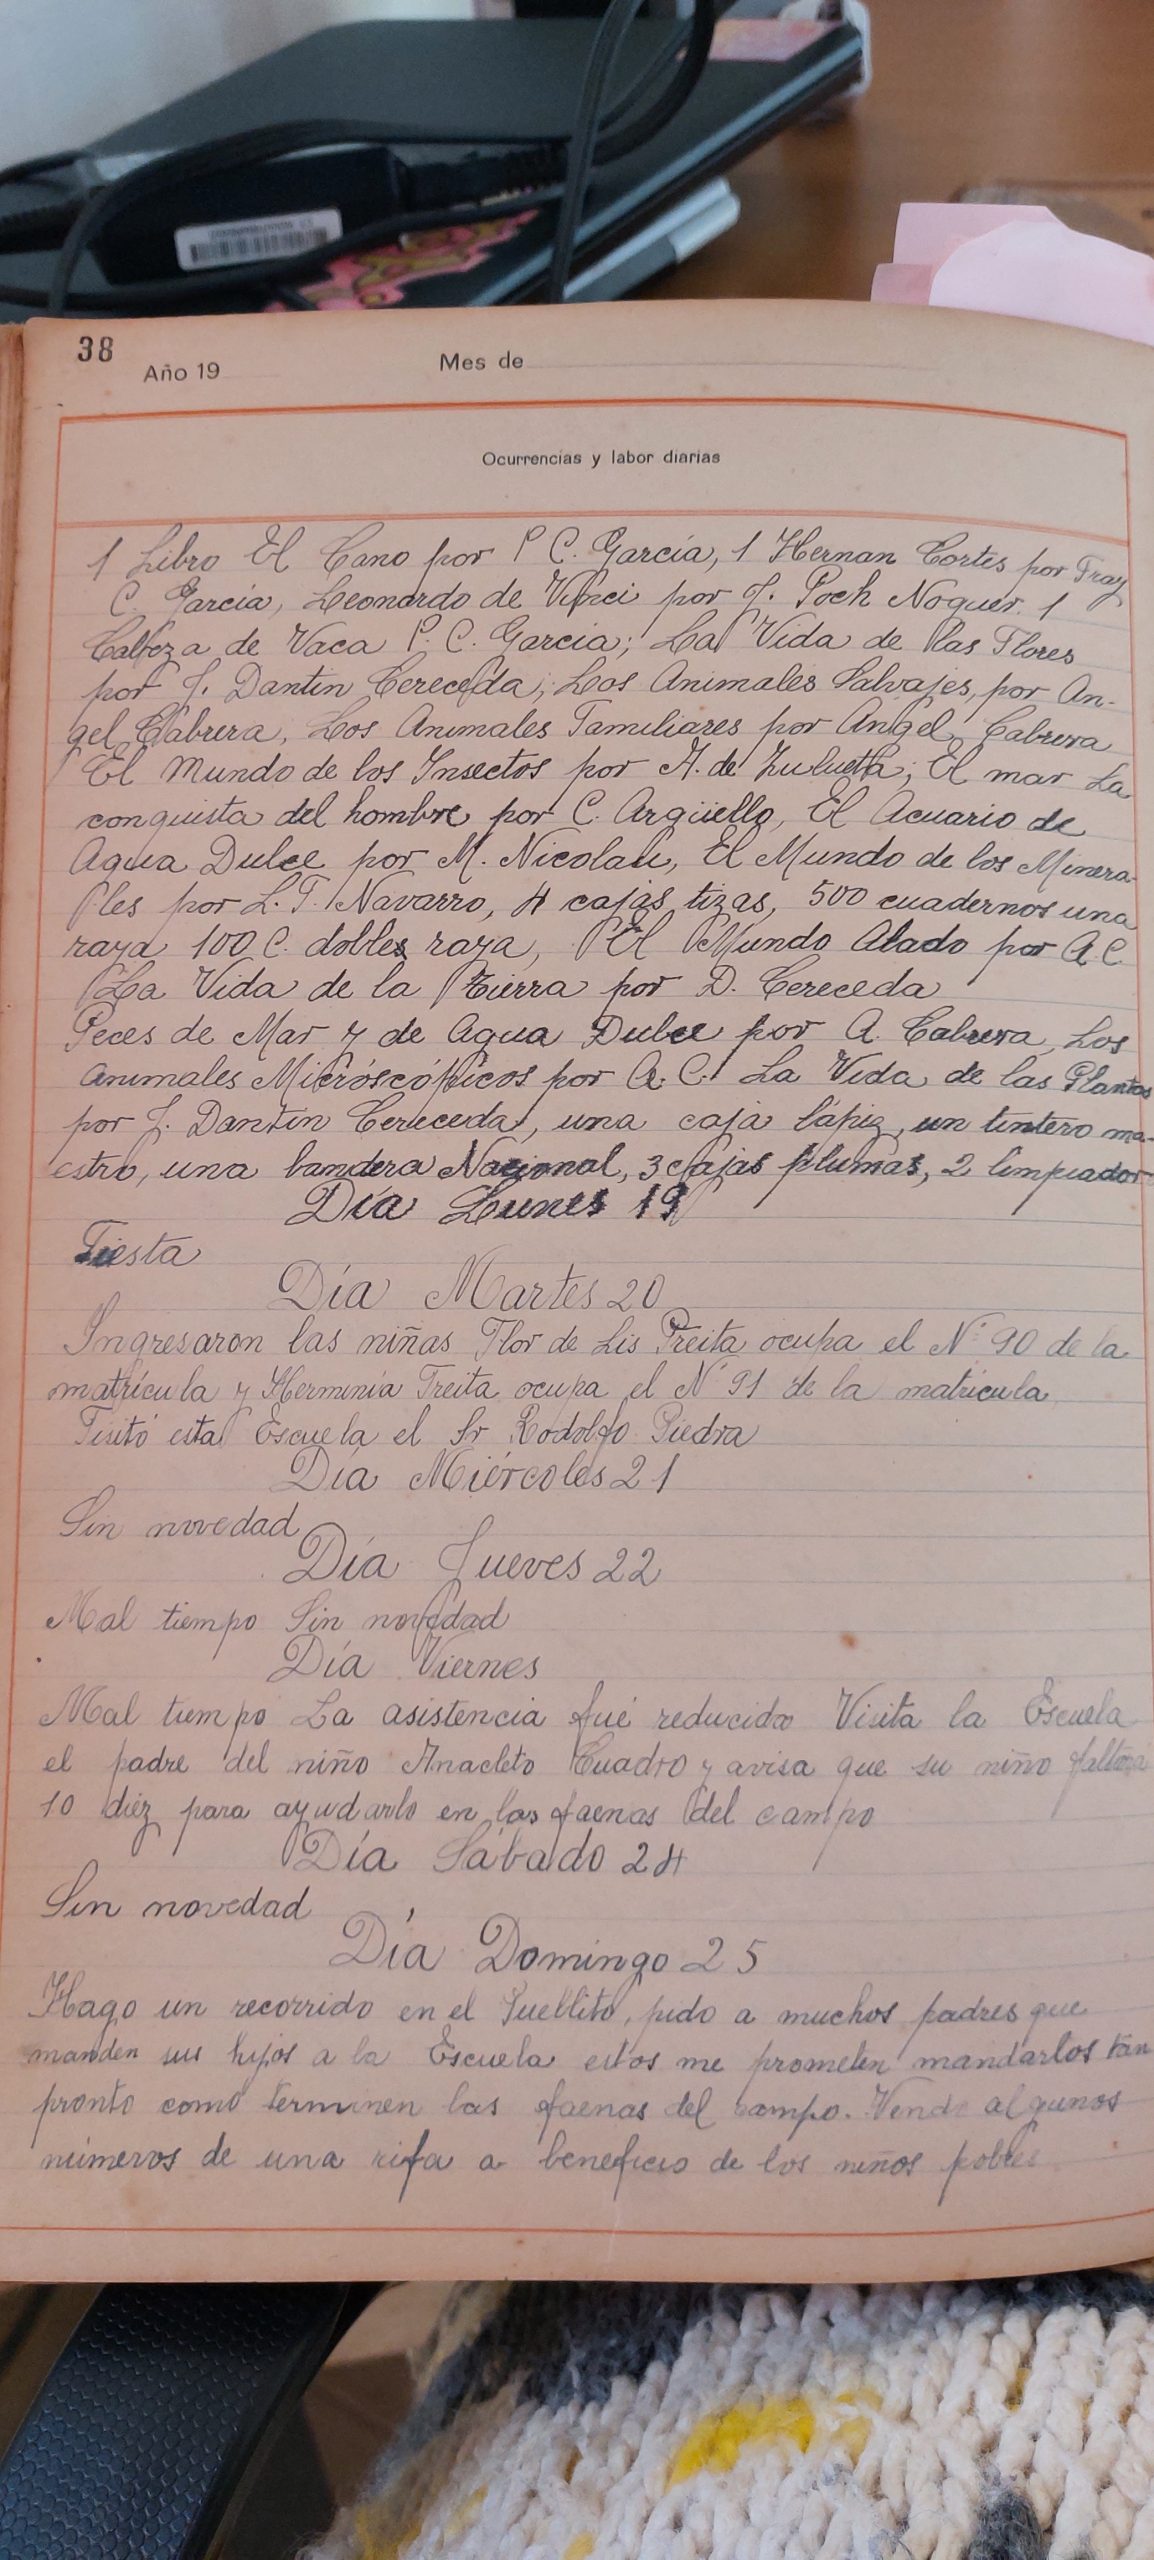 38
Año 19    Mes de
Ocurrencias y labor diarias
1 Libro El Cano por P C. García, 1 Hernan Cortes por Fray
C. García, Leonardo de Vinci por J. Poch Noguer. 1
Cabeza de Vaca P. C. Garcia; La Vida de las Flores
por J. Dantin Cereceda; Los Animales Salvajes, por An-
gel Cabrera, Los Animales Familiares por Angel Cabrera
El Mundo de los Insectos por A. de Zulueta; El mar La
conquista del hombre por C. Argüello, El Acuario de
Agua Dulce por M. Nicolau, El Mundo de los Minera-
les por L. F. Navarro, 4 cajas tizas, 500 cuadernos una
raya 100 C. dobles raya, El Mundo Alado por A. C.
La Vida de la Tierra por D. Cereceda
Peces de Mar y de Agua Dulce por A. Cabrera, Los
Animales Micróscópicos por A. C. La Vida de las Plantas
por J. Dantin Cereceda, una caja lápiz, un tintero ma-
estro, una bandera Nacional, 3 cajas plumas, 2 limpiador
Día Lunes 19
Fiesta
Día Martes 20
Ingresaron las niñas Flor de Lis Freita ocupa el Nº 90 de la
matrícula y Herminia Freita ocupa el Nº 91 de la matricula
Visitó esta Escuela el Sr Rodolfo Piedra
Día Miércoles 21
Sin novedad
Día Jueves 22
Mal tiempo Sin novedad
Día Viernes
Mal tiempo La asistencia fué reducida Visita la Escuela
el padre del niño Anacleto Cuadro y avisa que su niño faltará
10 diéz para ayudarlo en las faenas del campo
Día Sábado 24
Sin novedad
Día Domingo 25
Hago un recorrido en el Pueblito, pido a muchos padres que
manden sus hijos a la Escuela estos me prometen mandarlos tan
pronto como terminen las faenas del campo. Vendo algunos
números de una rifa a beneficio de los niños pobres